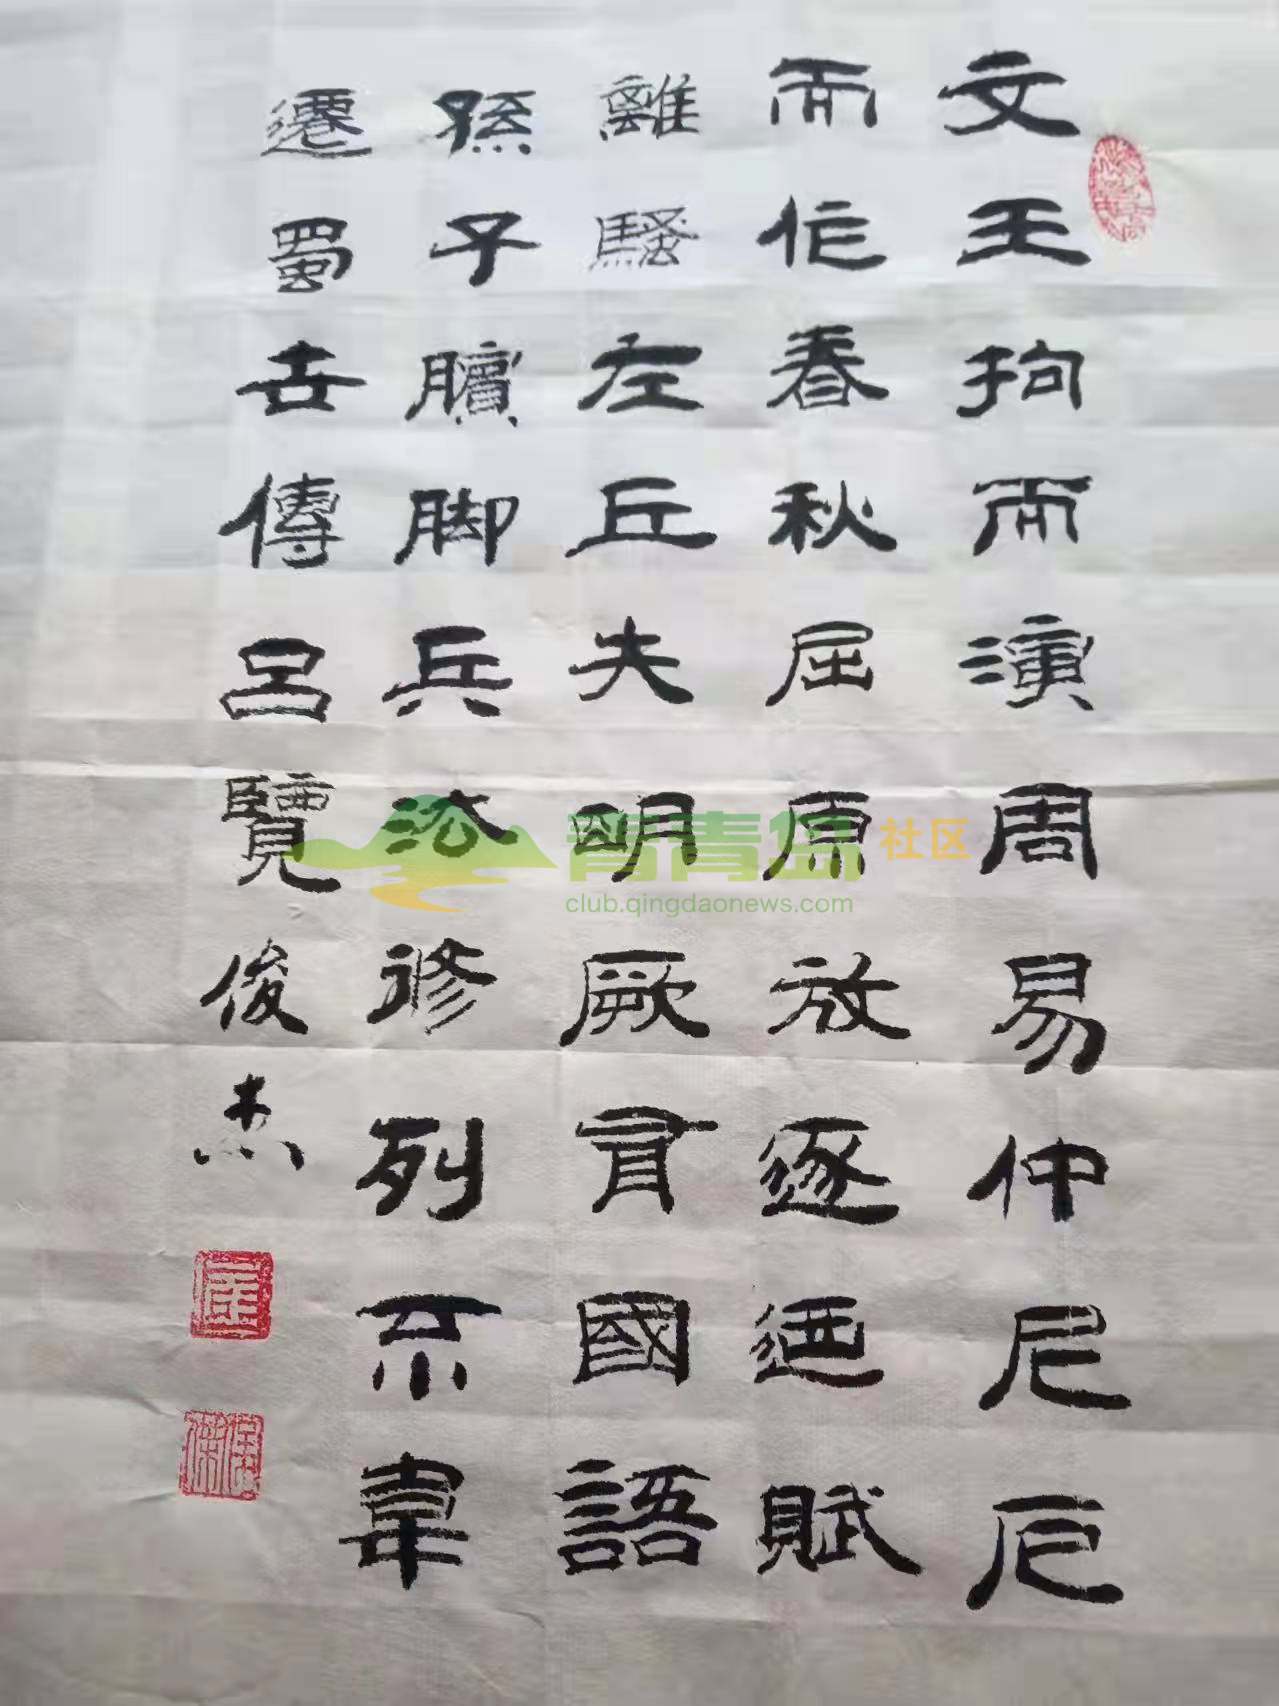 文王拘而演周易仲尼厄
而作春秋屈原放逐迺賦
離騷左丘失明厥有國語
孫子臏脚兵法修列不韋
遷蜀世傳呂覽俊杰
青青岛社区
club.qingdaonews.com